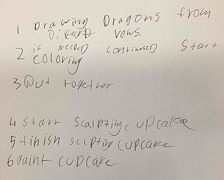 1 Drawing Dragons from
Different Vews.
2 if needed continued Start
coloring
3 Put together
4 start sculpting cupcake
5 finish sculpting cupcake
6 paint cupcake